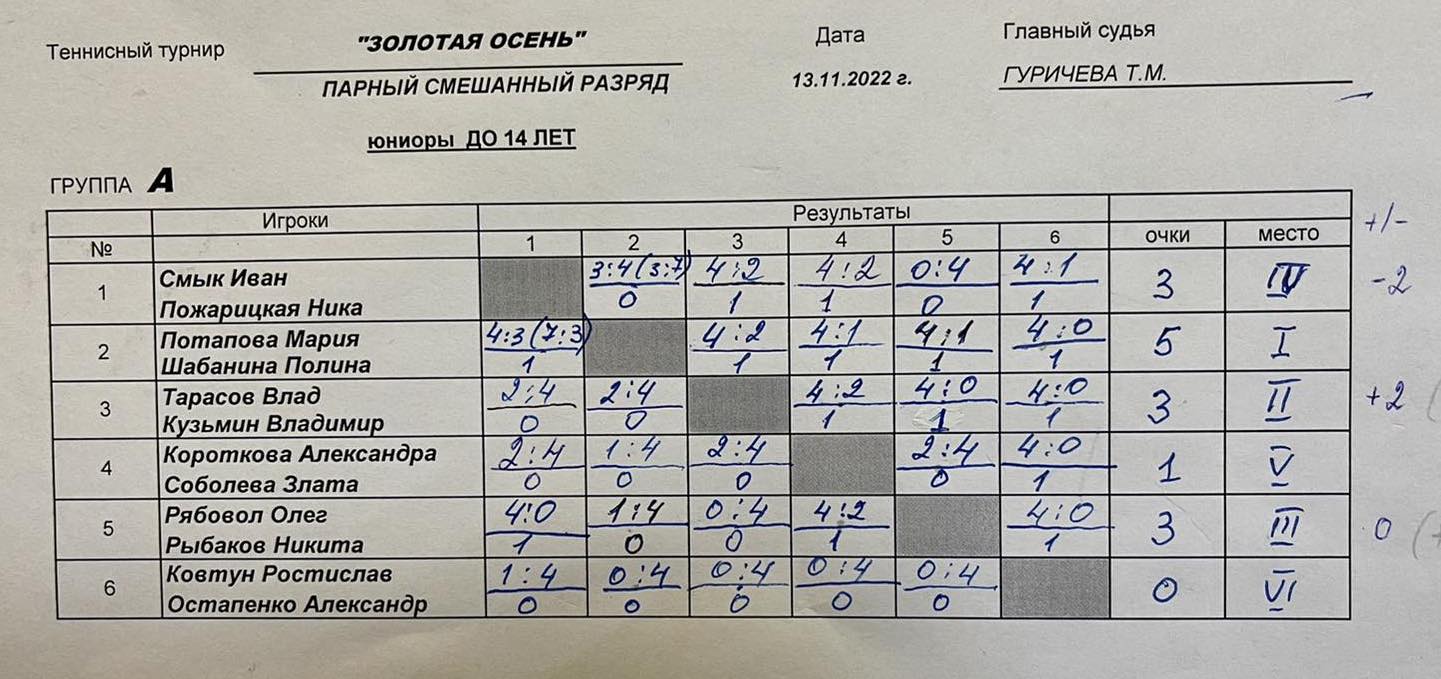 Теннисный турнир "ЗОЛОТАЯ ОСЕНЬ" Дата Главный судья
ПАРНЫЙ СМЕШАННЫЙ РАЗРЯД 13.11.2022 г. ГУРИЧЕВА Т.М.
юниоры ДО 14 ЛЕТ
ГРУППА А
Игроки Результаты +/-
№ 1 2 3 4 5 6 очки место
Смык Иван 3:4(3:7) 4:2 4:2 0:4 4:1
1 3 IV -2
Пожарицкая Ника 0 1 1 0 1
Потапова Мария 4:3(7:3) 4:2 4:1 4:1 4:0
2 5 I
Шабанина Полина 1 1 1 1 1
Тарасов Влад 2:4 2:4 4:2 4:0 4:0
3 3 II +2
Кузьмин Владимир 0 0 1 1 1
Короткова Александра 2:4 1:4 2:4 2:4 4:0
4 1 V
Соболева Злата 0 0 0 0 1
Рябовол Олег 4:0 1:4 0:4 4:2 4:0
5 3 III 0
Рыбаков Никита 1 0 0 1 1
Ковтун Ростислав 1:4 0:4 0:4 0:4 0:4
6 0 VI
Остапенко Александр 0 0 0 0 0